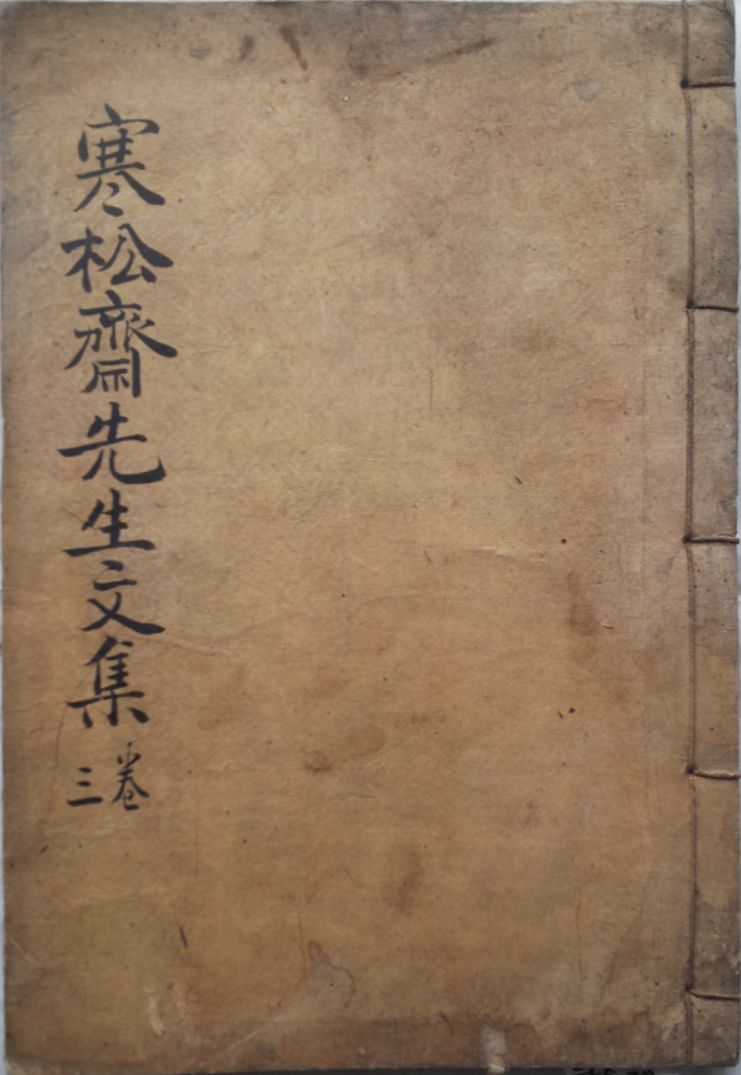 寒松齋先生文集
卷三